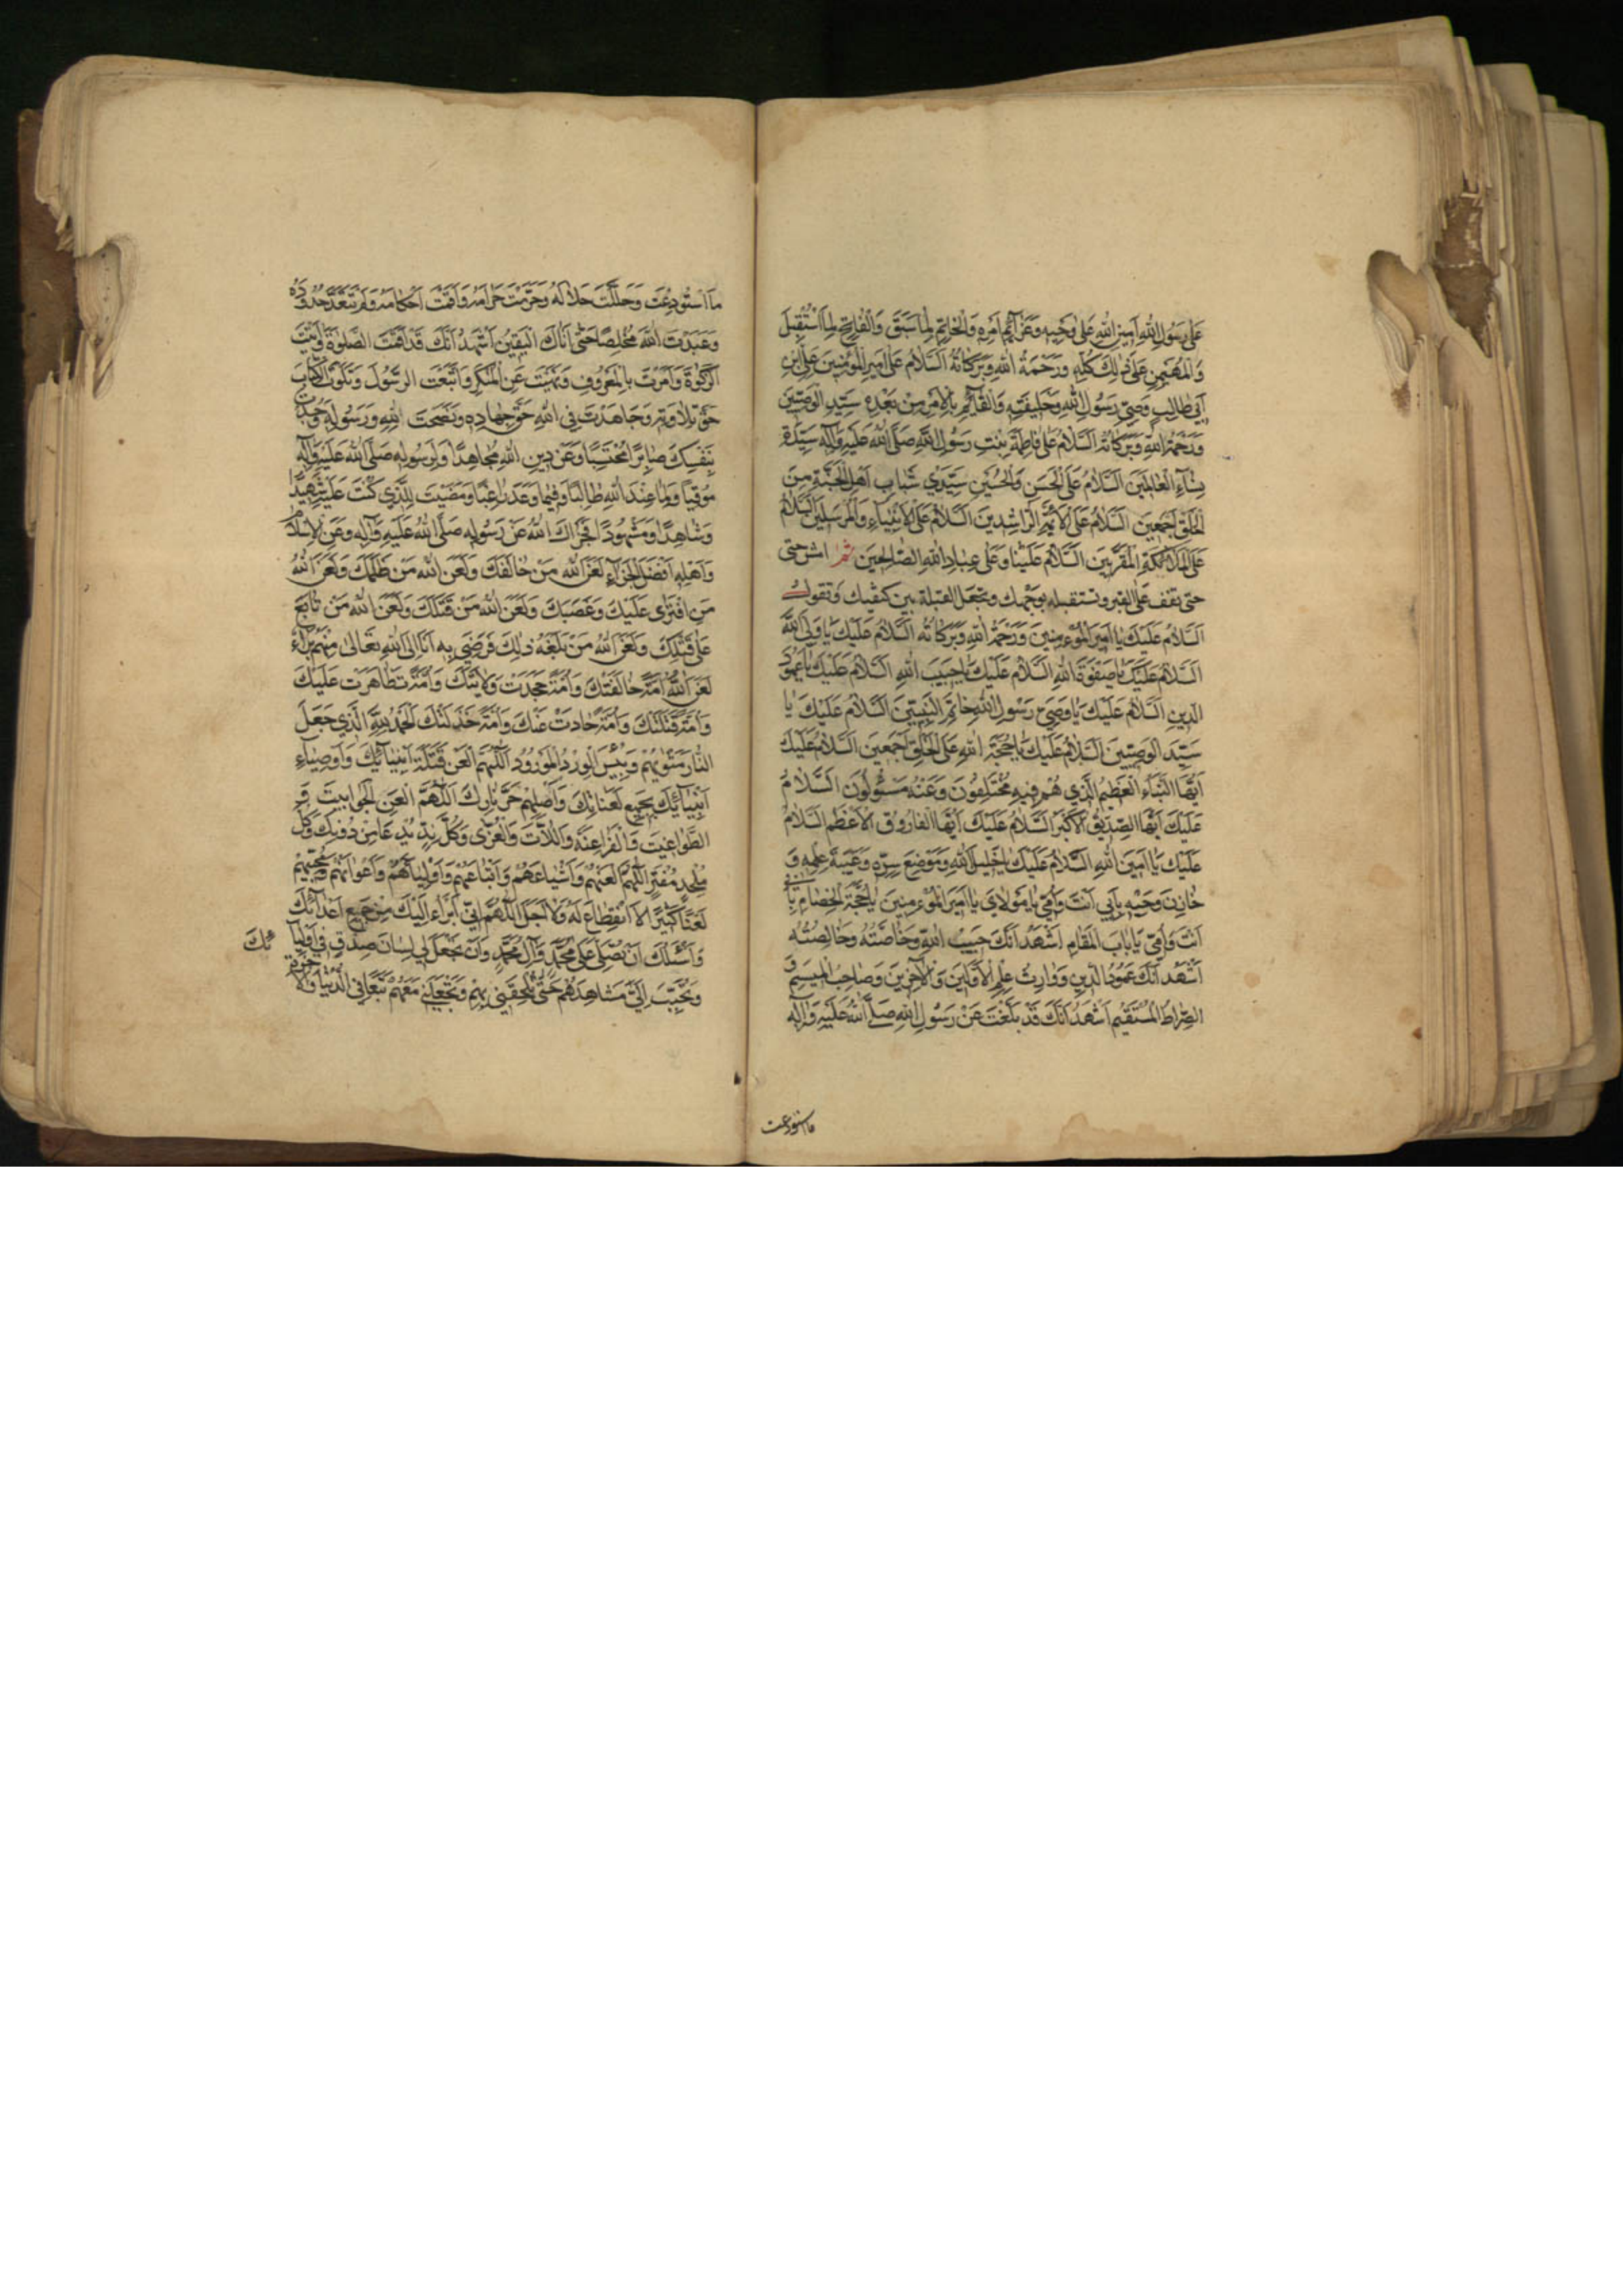 عَلىٰ رَسُولِ اللهِ اَمينِ اللهِ عَلىٰ وَحْيِهِ وَعَزآئِمِ اَمْرِهِ وَالْخاتِمِ لِما سَبَقَ وَالْفاتِحِ لِمَا اسْتُقْبِلَ
وَالْمُهَيْمِنِ عَلىٰ ذٰلِكَ كُلِّهِ وَرَحْمَةُ اللهِ وَبَرَكاتُهُ اَلسَّلامُ عَلىٰ اَميرِ الْمُؤْمِنينَ عَلِيِّ ابْنِ
اَبي طالِبٍ وَصِيِّ رَسُولِ اللهِ وَخَليفَتِهِ وَالْقآئِمِ بِالْاَمْرِ مِنْ بَعْدِهِ سَيِّدِ الْوَصِيّينَ
وَرَحْمَةُ اللهِ وَبَرَكاتُهُ اَلسَّلامُ عَلىٰ فاطِمَةَ بِنْتِ رَسُولِ اللهِ صَلَّى اللهُ عَلَيْهِ وَآلِهِ سَيِّدَةِ
نِسآءِ الْعالَمينَ اَلسَّلامُ عَلَى الْحَسَنِ وَالْحُسَيْنِ سَيِّدَيْ شَبابِ اَهْلِ الْجَنَّةِ مِنَ
الْخَلْقِ اَجْمَعينَ اَلسَّلامُ عَلَى الْاَئِمَّةِ الرّاشِدينَ اَلسَّلامُ عَلَى الْاَنْبِيآءِ وَالْمُرْسَلينَ اَلسَّلامُ
عَلَى الْمَلآئِكَةِ الْمُقَرَّبينَ اَلسَّلامُ عَلَيْنا وَعَلىٰ عِبادِ اللهِ الصّالِحينَ ثمّ امش حتى
حتى تقف على القبر وتستقبله بوجهك وتجعل القبلة بين كتفيك وتقول
اَلسَّلامُ عَلَيْكَ يا اَميرَ الْمُؤْمِنينَ وَرَحْمَةُ اللهِ وَبَرَكاتُهُ اَلسَّلامُ عَلَيْكَ يا وَلِيَّ اللهِ
اَلسَّلامُ عَلَيْكَ يا صَفْوَةَ اللهِ اَلسَّلامُ عَلَيْكَ يا حَبيبَ اللهِ اَلسَّلامُ عَلَيْكَ يا عَمُودَ
الدّينِ اَلسَّلامُ عَلَيْكَ يا وَصِيَّ رَسُولِ اللهِ خاتَمِ النَّبِيّينَ اَلسَّلامُ عَلَيْكَ يا
سَيِّدَ الْوَصِيّينَ اَلسَّلامُ عَلَيْكَ يا حُجَّةَ اللهِ عَلَى الْخَلْقِ اَجْمَعينَ اَلسَّلامُ عَلَيْكَ
اَيُّهَا النَّبَاُ الْعَظيمُ الَّذي هُمْ فيهِ مُخْتَلِفُونَ وَعَنْهُ مَسْئُولُونَ اَلسَّلامُ
عَلَيْكَ اَيُّهَا الصِّدّيقُ الْاَكْبَرُ اَلسَّلامُ عَلَيْكَ اَيُّهَا الْفارُوقُ الْاَعْظَمُ اَلسَّلامُ
عَلَيْكَ يا اَمينَ اللهِ اَلسَّلامُ عَلَيْكَ يا خَليلَ اللهِ وَمَوْضِعَ سِرِّهِ وَعَيْبَةَ عِلْمِهِ وَ
خازِنَ وَحْيِهِ بِاَبي اَنْتَ وَاُمّي يا مَوْلايَ يا اَميرَ الْمُؤْمِنينَ يا حُجَّةَ الْخِصامِ بِاَبي
اَنْتَ وَاُمّي يا بابَ الْمَقامِ اَشْهَدُ اَنَّكَ حَبيبُ اللهِ وَخاصَّتُهُ وَخالِصَتُهُ
اَشْهَدُ اَنَّكَ عَمُودُ الدّينِ وَوارِثُ عِلْمِ الْاَوَّلينَ وَالْآخِرينَ وَصاحِبُ الْميسَمِ وَ
الصِّراطِ الْمُسْتَقيمِ اَشْهَدُ اَنَّكَ قَدْ بَلَّغْتَ عَنْ رَسُولِ اللهِ صَلَّى اللهُ عَلَيْهِ وَآلِهِ
ما استودعت
مَا اسْتُودِعْتَ وَحَلَّلْتَ حَلالَهُ وَحَرَّمْتَ حَرامَهُ وَاَقَمْتَ اَحْكامَهُ وَلَمْ تَتَعَدَّ حُدُودَهُ
وَعَبَدْتَ اللهَ مُخْلِصًا حَتّىٰ اَتاكَ الْيَقينُ اَشْهَدُ اَنَّكَ قَدْ اَقَمْتَ الصَّلوٰةَ وَآتَيْتَ
الزَّكوٰةَ وَاَمَرْتَ بِالْمَعْرُوفِ وَنَهَيْتَ عَنِ الْمُنْكَرِ وَاتَّبَعْتَ الرَّسُولَ وَتَلَوْتَ الْكِتابَ
حَقَّ تِلاوَتِهِ وَجاهَدْتَ فِي اللهِ حَقَّ جِهادِهِ وَنَصَحْتَ لِلّٰهِ وَرَسُولِهِ وَجُدْتَ
بِنَفْسِكَ صابِرًا مُحْتَسِبًا وَعَنْ دينِ اللهِ مُجاهِدًا وَلِرَسُولِهِ صَلَّى اللهُ عَلَيْهِ وَآلِهِ
مُوقِيًا وَلِما عِنْدَ اللهِ طالِبًا وَفيما وَعَدَ راغِبًا وَمَضَيْتَ لِلَّذي كُنْتَ عَلَيْهِ شَهيدًا
وَشاهِدًا وَمَشْهُودًا فَجَزاكَ اللهُ عَنْ رَسُولِهِ صَلَّى اللهُ عَلَيْهِ وَآلِهِ وَعَنِ الْاِسْلامِ
وَاَهْلِهِ اَفْضَلَ الْجَزآءِ لَعَنَ اللهُ مَنْ خالَفَكَ وَلَعَنَ اللهُ مَنْ ظَلَمَكَ وَلَعَنَ اللهُ
مَنِ افْتَرىٰ عَلَيْكَ وَغَصَبَكَ وَلَعَنَ اللهُ مَنْ قَتَلَكَ وَلَعَنَ اللهُ مَنْ تابَعَ
عَلىٰ قَتْلِكَ وَلَعَنَ اللهُ مَنْ بَلَغَهُ ذٰلِكَ فَرَضِيَ بِهِ اَنَا اِلَى اللهِ تَعالىٰ مِنْهُمْ بَرآءٌ
لَعَنَ اللهُ اُمَّةً خالَفَتْكَ وَاُمَّةً جَحَدَتْ وَلايَتَكَ وَاُمَّةً تَظاهَرَتْ عَلَيْكَ
وَاُمَّةً قَتَلَتْكَ وَاُمَّةً حادَتْ عَنْكَ وَاُمَّةً خَذَلَتْكَ اَلْحَمْدُ لِلّٰهِ الَّذي جَعَلَ
النّارَ مَثْوٰيهُمْ وَبِئْسَ الْوِرْدُ الْمَوْرُودُ اَللّٰهُمَّ الْعَنْ قَتَلَةَ اَنْبِيآئِكَ وَاَوْصِيآءِ
اَنْبِيآئِكَ بِجَميعِ لَعَناتِكَ وَاَصْلِهِمْ حَرَّ نارِكَ اَللّٰهُمَّ الْعَنِ الْجَوابيتَ وَ
الطَّواغيتَ وَالْفَراعِنَةَ وَاللّاتَ وَالْعُزّىٰ وَكُلَّ نِدٍّ يُدْعا مِنْ دُونِكَ وَكُلَّ
مُلْحِدٍ مُفْتَرٍ اَللّٰهُمَّ الْعَنْهُمْ وَاَشْياعَهُمْ وَاَتْباعَهُمْ وَاَوْلِيآءَهُمْ وَاَعْوانَهُمْ وَمُحِبّيهِمْ
لَعْنًا كَثيرًا لَا انْقِطاعَ لَهُ وَلا اَجَلَ اَللّٰهُمَّ اِنّي اَبْرَاُ اِلَيْكَ مِنْ جَميعِ اَعْدآئِكَ
وَاَسْئَلُكَ اَنْ تُصَلِّيَ عَلىٰ مُحَمَّدٍ وَآلِ مُحَمَّدٍ وَاَنْ تَجْعَلَ لي لِسانَ صِدْقٍ في اَوْلِيآ ئِكَ
وَتُحَبِّبَ اِلَيَّ مَشاهِدَهُمْ حَتّىٰ تُلْحِقَني بِهِمْ وَتَجْعَلَني مَعَهُمْ تَبَعًا فِي الدُّنْيا وَالْآخِرَةِ